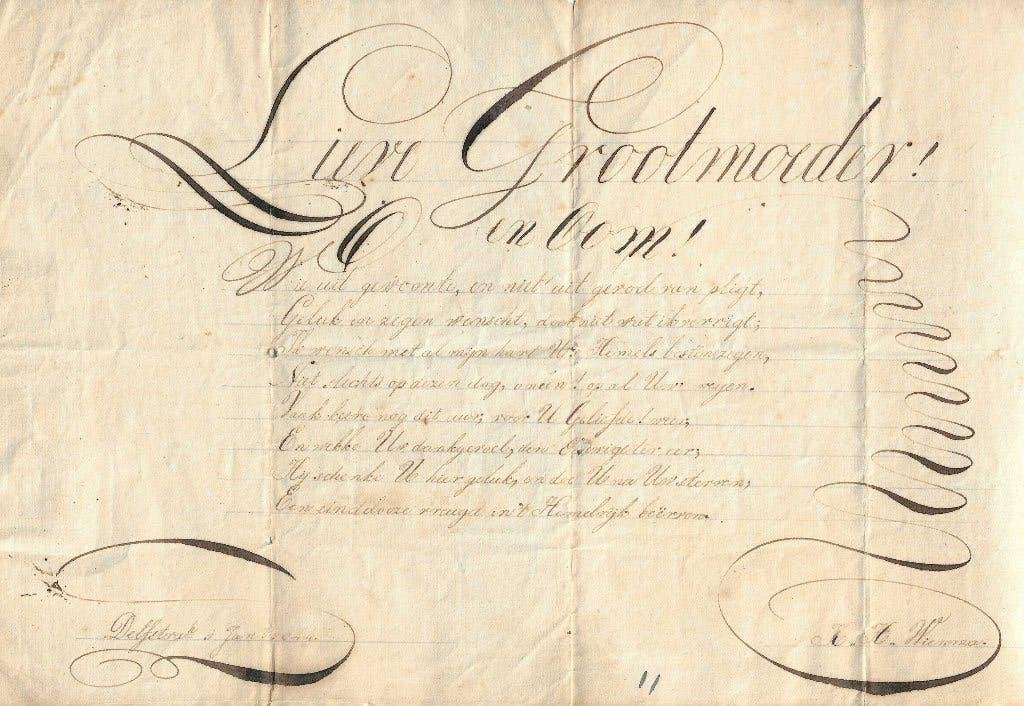 Lieve Grootmoeder!
en Oom!
Wie uit gewoonte, en niet uit gevoel van pligt,
Geluk en zegen wenscht, doet niet wat ik verrigt;
Ik wensch met al mijn hart Uw Hemels besten zegen,
Niet slechts op dezen dag, o neen! op al Uw wegen.
Vaak keere nog dit uur, voor U Geliefde! weer,
En wekke Uw dankgevoel, den Eeuwigste ter eer;
Hij schenke U hier geluk, en doe U na Uw sterven,
Een eindelooze vreugd in 't Hemelrijk beërven.
Delfstrah Jan
K. H. Wiersma.
11